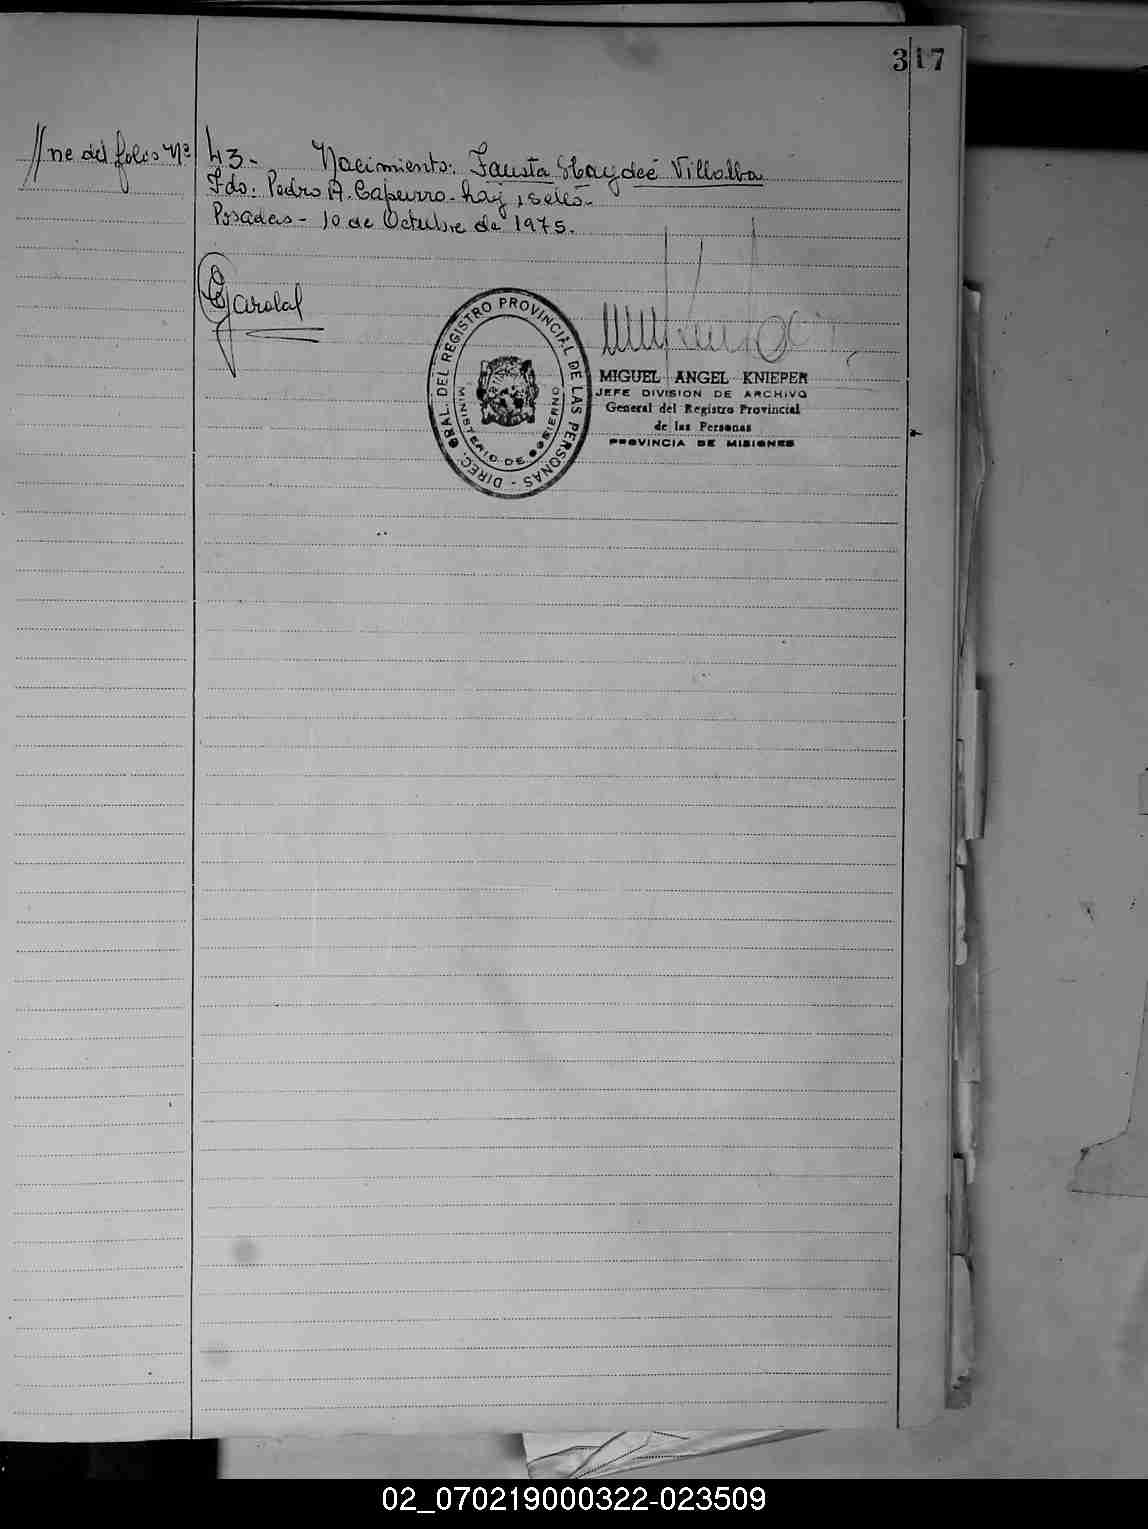 317
//ne del folio Nº 43- Nacimiento: Fausta Haydeé Villalba
Fdo: Pedro A. Capurro- hay, sello-
Posadas- 10 de Octubre de 1975.
DIREC. GRAL. DEL REGISTRO PROVINCIAL DE LAS PERSONAS -
MINISTERIO DE GOBIERNO
MIGUEL ANGEL KNIEPER
JEFE DIVISION DE ARCHIVO
General del Registro Provincial
de las Personas
PROVINCIA DE MISIONES
02_070219000322-023509